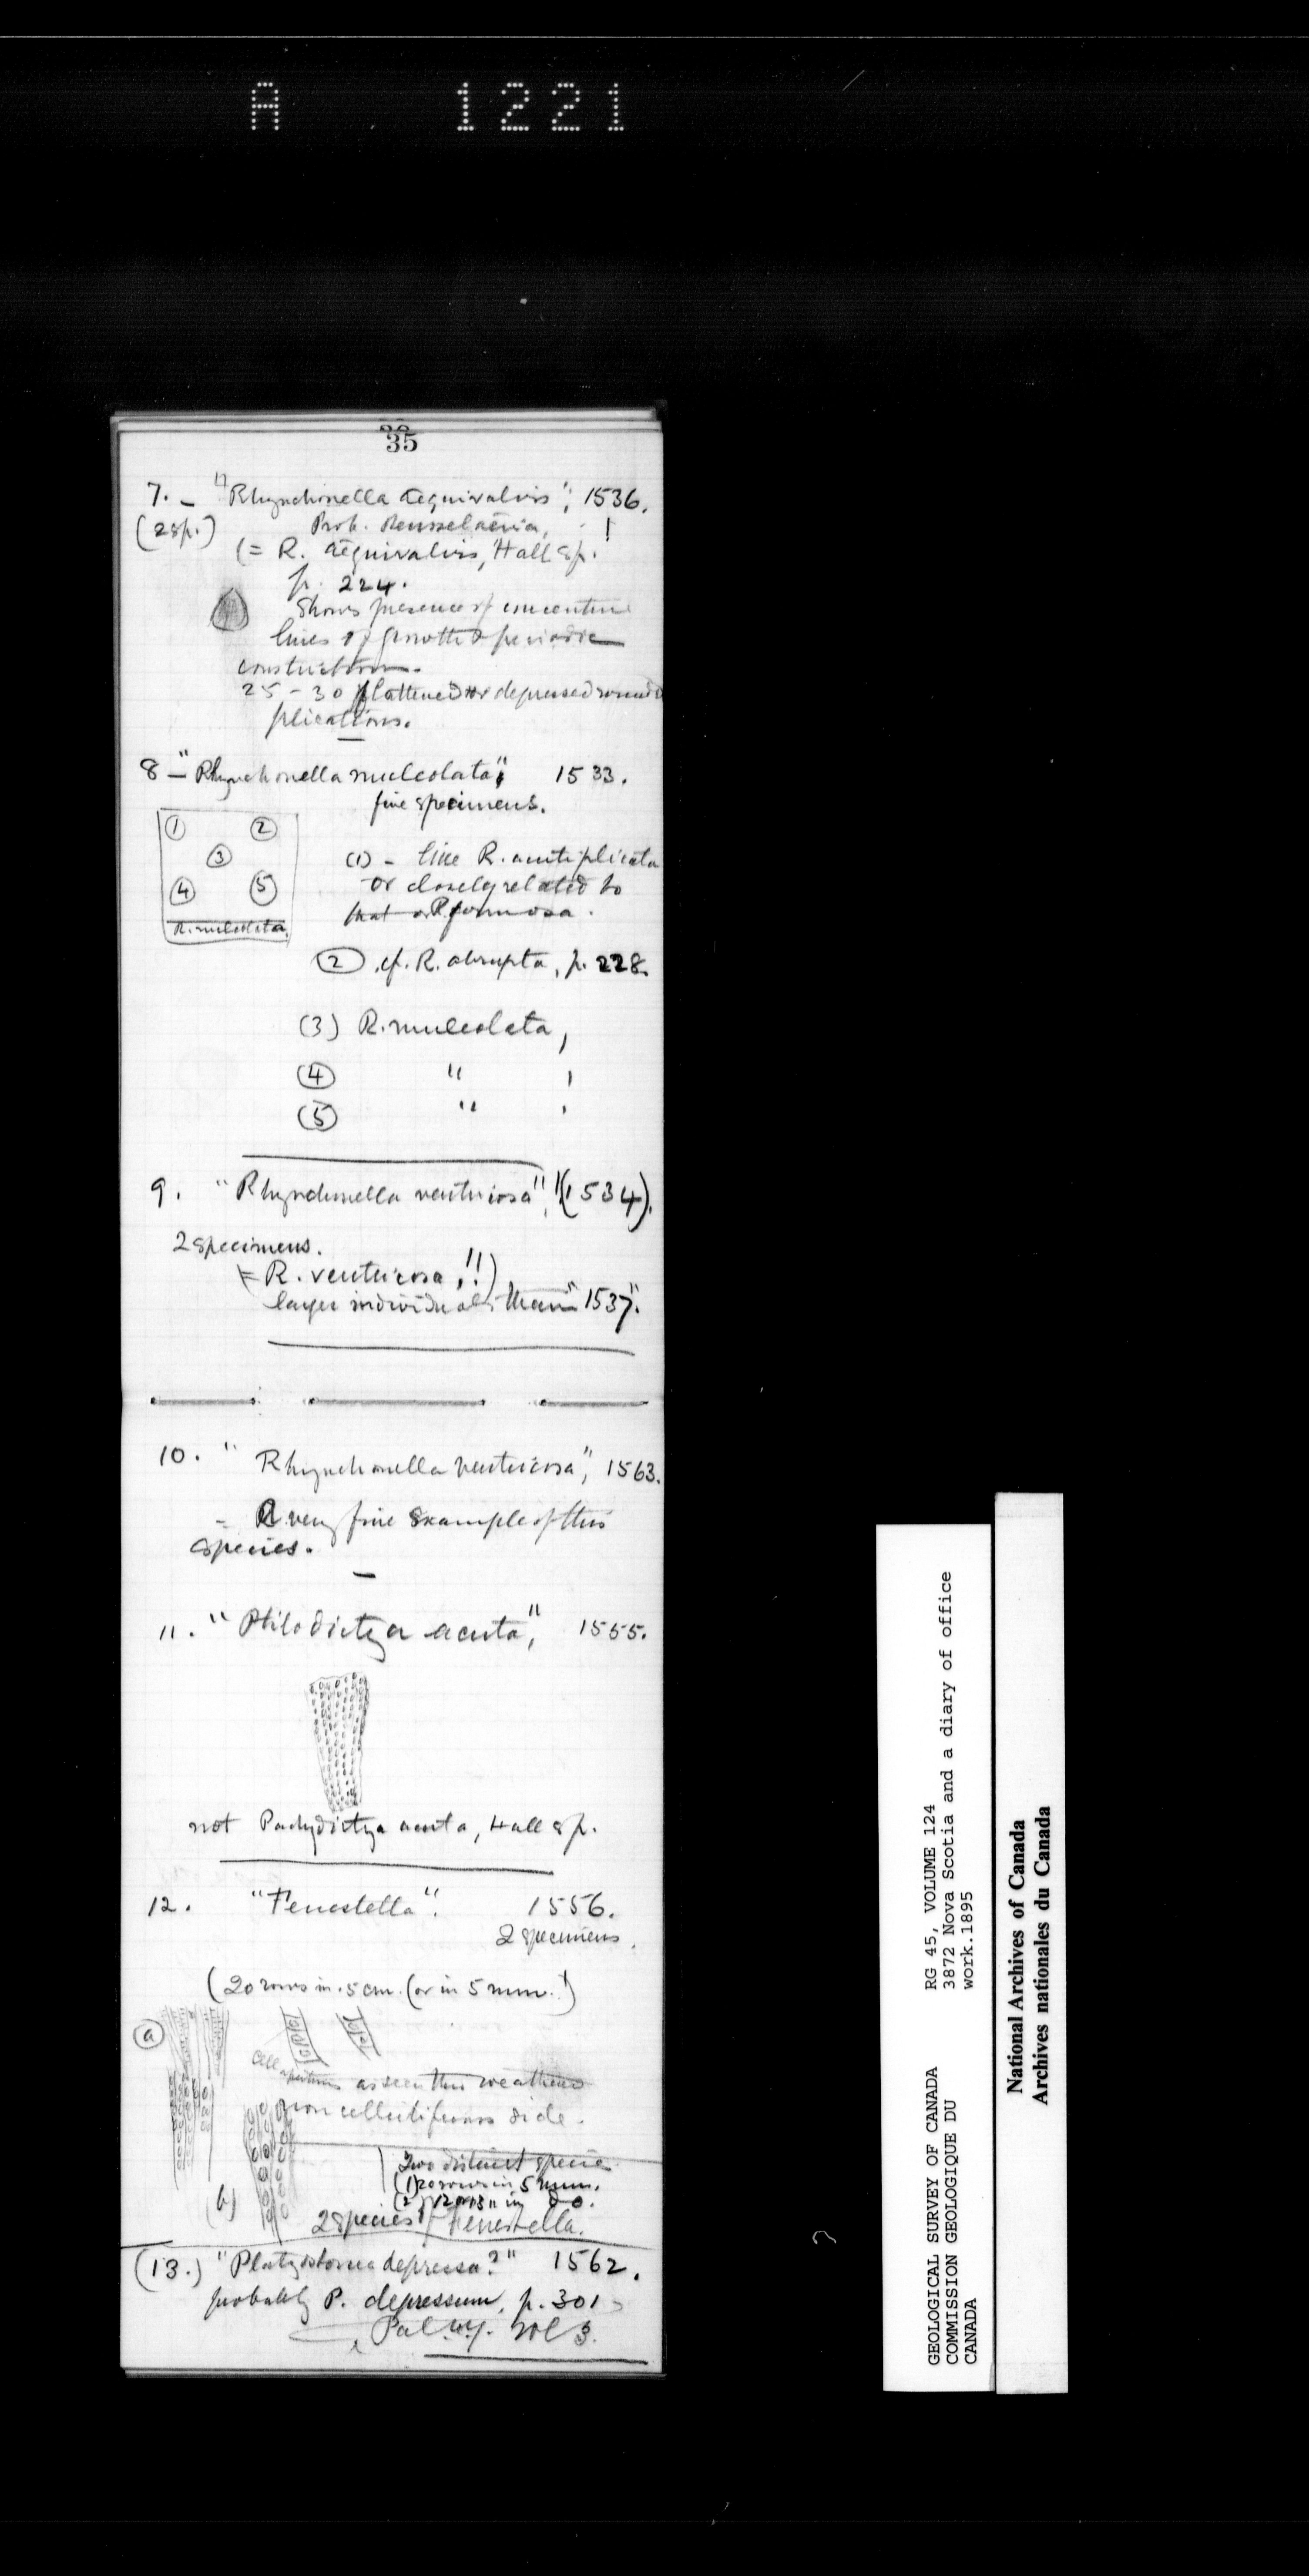 A 1221
35
7. – "Rhynchonella aequivalvis", 1536.
(2 sp.) Prob. Rensselaeria, !
(= R. aequivalvis, Hall sp.
p. 224.
Shows presence of concentric
lines of growth & periodic
constrictions.
25 - 30 flattened or depressed round
plications.
8 – "Rhynchonella nucleolata", 1533.
fine specimens.
1 2
3
4 5
R. nucleolata.
(1) – like R. acutiplicata
or closely related to
that or R. formosa.
(2) cf. R. abrupta, p. 228.
(3) R. nucleolata,
(4) " !
(5) " !
9. "Rhynchonella ventricosa", (1534).
2 specimens.
= R. ventricosa, !!)
larger individuals than "1537".
10. "Rhynchonella ventricosa", 1563.
= A very fine example of this
species.
11. "Ptilodictya acuta", 1555.
not Pachydictya acuta, Hall sp.
12. "Fenestella". 1556.
2 specimens.
(20 rows in .5 cm. (or in 5 mm.!)
(a)
Cell apertures as seen thro weathered
non celluliferous side.
Two distinct species
(1) 20 rows in 5 mm.
(2) 12 or 13 " in do.
(b)
2 species of Fenestella.
(13.) "Platyostoma depressa?" 1562.
probably P. depressum, p. 301
Pal. N.Y. Vol 3.
GEOLOGICAL SURVEY OF CANADA
COMMISSION GEOLOGIQUE DU
CANADA
RG 45, VOLUME 124
3872 Nova Scotia and a diary of office
work.1895
National Archives of Canada
Archives nationales du Canada